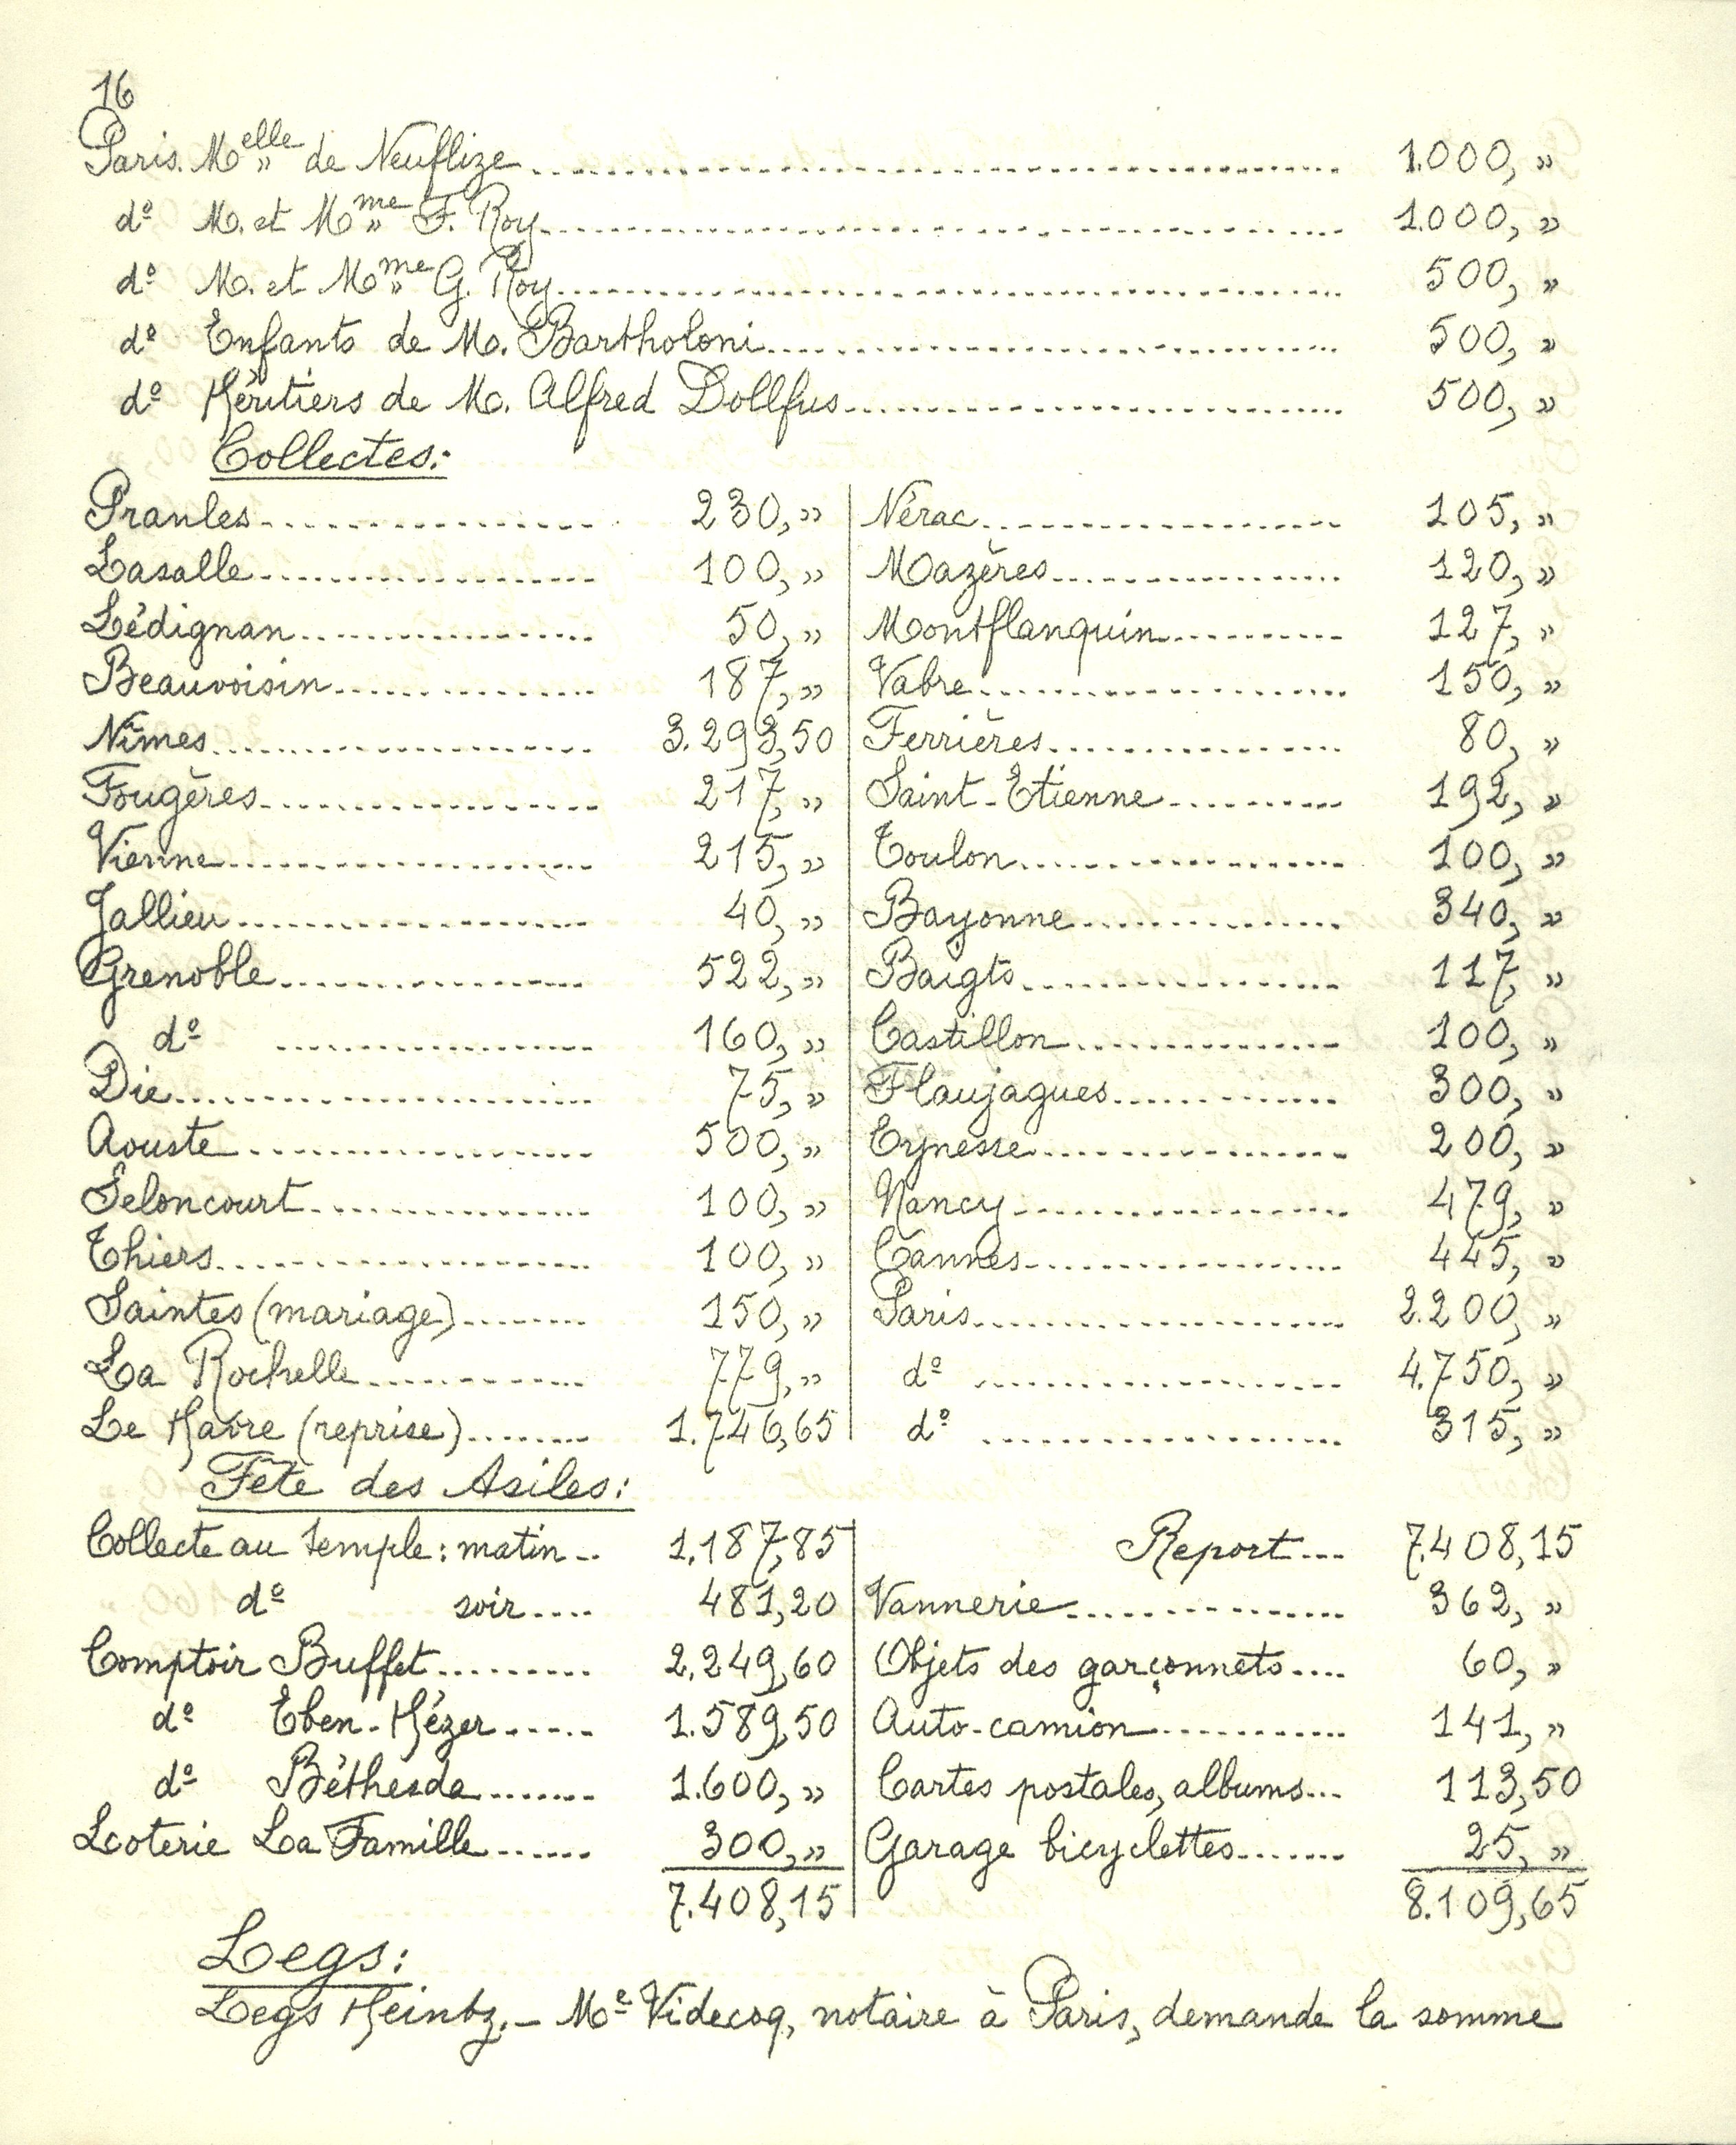 16
Paris. Melle de Neuflize ........ 1.000, »
do M. et Mme F. Roy ........ 1.000, »
do M. et Mme G. Roy ........ 500, »
do Enfants de M. Bartholoni ........ 500, »
do Héritiers de M. Alfred Dollfus ........ 500, »
Collectes:
Pranles ........ 230, » | Nérac ........ 105, »
Lasalle ........ 100, » | Mazères ........ 120, »
Lédignan ........ 50, » | Montflanquin ........ 127, »
Beauvoisin ........ 187, » | Vabre ........ 150, »
Nîmes ........ 3.293,50 | Ferrières ........ 80, »
Fougères ........ 217, » | Saint-Etienne ........ 192, »
Vienne ........ 215, » | Toulon ........ 100, »
Jallieu ........ 40, » | Bayonne ........ 340, »
Grenoble ........ 522, » | Baigts ........ 117, »
do ........ 160, » | Castillon ........ 100, »
Die ........ 75, » | Flaujagues ........ 300, »
Aouste ........ 500, » | Eynesse ........ 200, »
Seloncourt ........ 100, » | Nancy ........ 479, »
Thiers ........ 100, » | Cannes ........ 445, »
Saintes (mariage) ........ 150, » | Paris ........ 2.200, »
La Rochelle ........ 779, » | do ........ 4.750, »
Le Havre (reprise) ........ 1.746,65 | do ........ 315, »
Fête des Asiles:
Collecte au temple: matin .. 1.187,85 | Report ... 7.408,15
do soir .... 481,20 | Vannerie ........ 362, »
Comptoir Buffet ........ 2.249,60 | Objets des garçonnets .... 60, »
do Eben-Hézer ...... 1.589,50 | Auto-camion ........ 141, »
do Béthesda ....... 1.600, » | Cartes postales, albums ... 113,50
Loterie La Famille ...... 300, » | Garage bicyclettes ....... 25, »
7.408,15 | 8.109,65
Legs:
Legs Heintz. – Me Videcoq, notaire à Paris, demande la somme